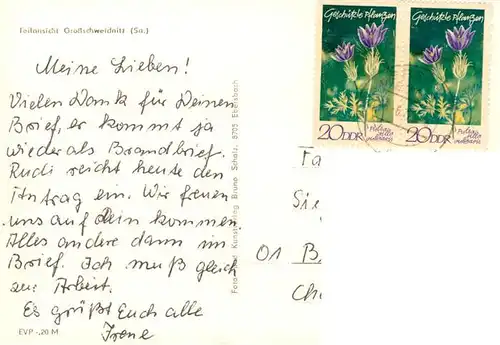 Teilansicht Großschweidnitz (Sa.)
Meine Lieben!
Vielen Dank für Deinen
Brief, er kommt ja
wieder als Brandbrief.
Rudi reicht heute den
Antrag ein. Wir freuen
uns auf Dein kommen.
Alles andere dann im
Brief. Ich muß gleich
zur Arbeit.
Es grüßt Euch alle
Irene
EVP -,20 M
Kunstverlag Bruno Scholz, 8705 Ebersbach
Geschützte Pflanzen
20 DDR
Geschützte Pflanzen
20 DDR
Fa
Sie
01 B
Ch